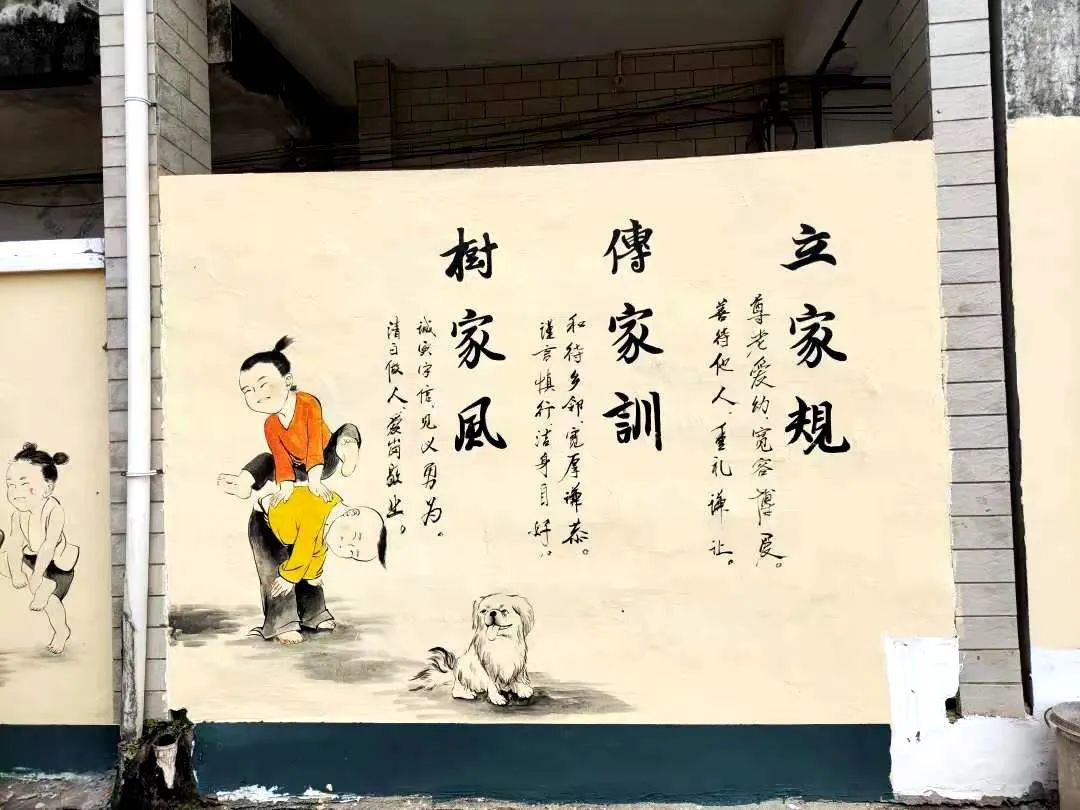 立家規
尊老爱幼、宽容博爱。
善待他人、重礼谦让。
傳家訓
和待乡邻、宽厚谦恭。
谨言慎行洁身自好。
樹家風
诚实守信、见义勇为。
清白做人、爱岗敬业。